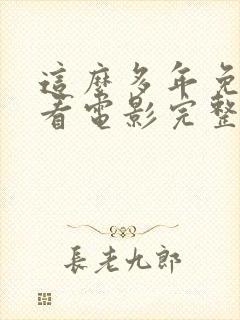 這麼多年免
看電影完整
長老九郎